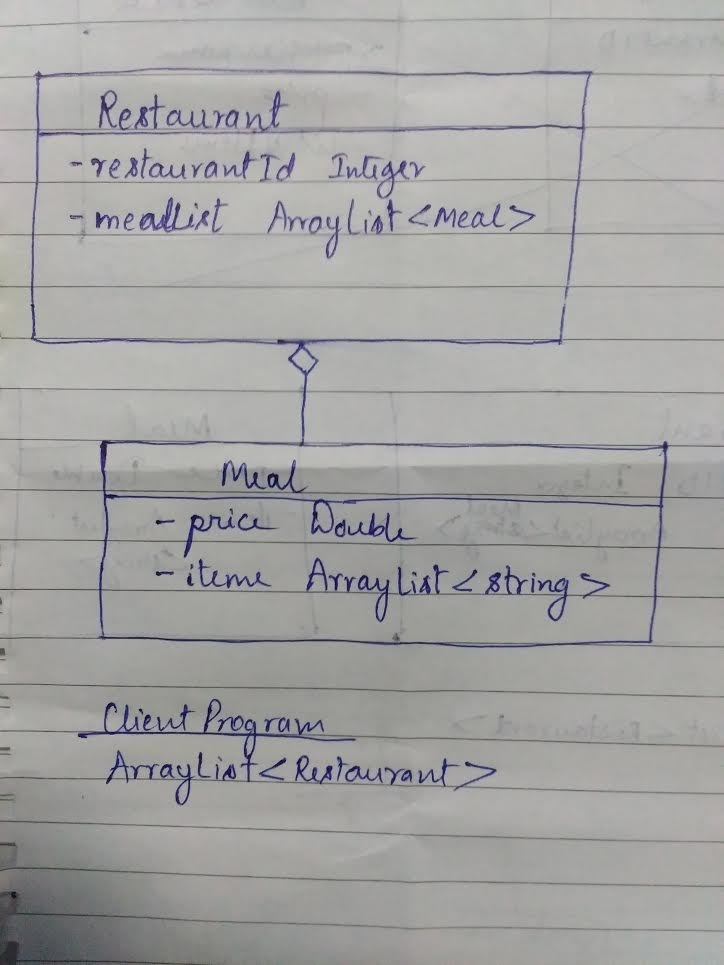 Restaurant
- restaurantId Integer
- mealList ArrayList<Meal>
Meal
- price Double
- items ArrayList<string>
Client Program
ArrayList<Restaurant>